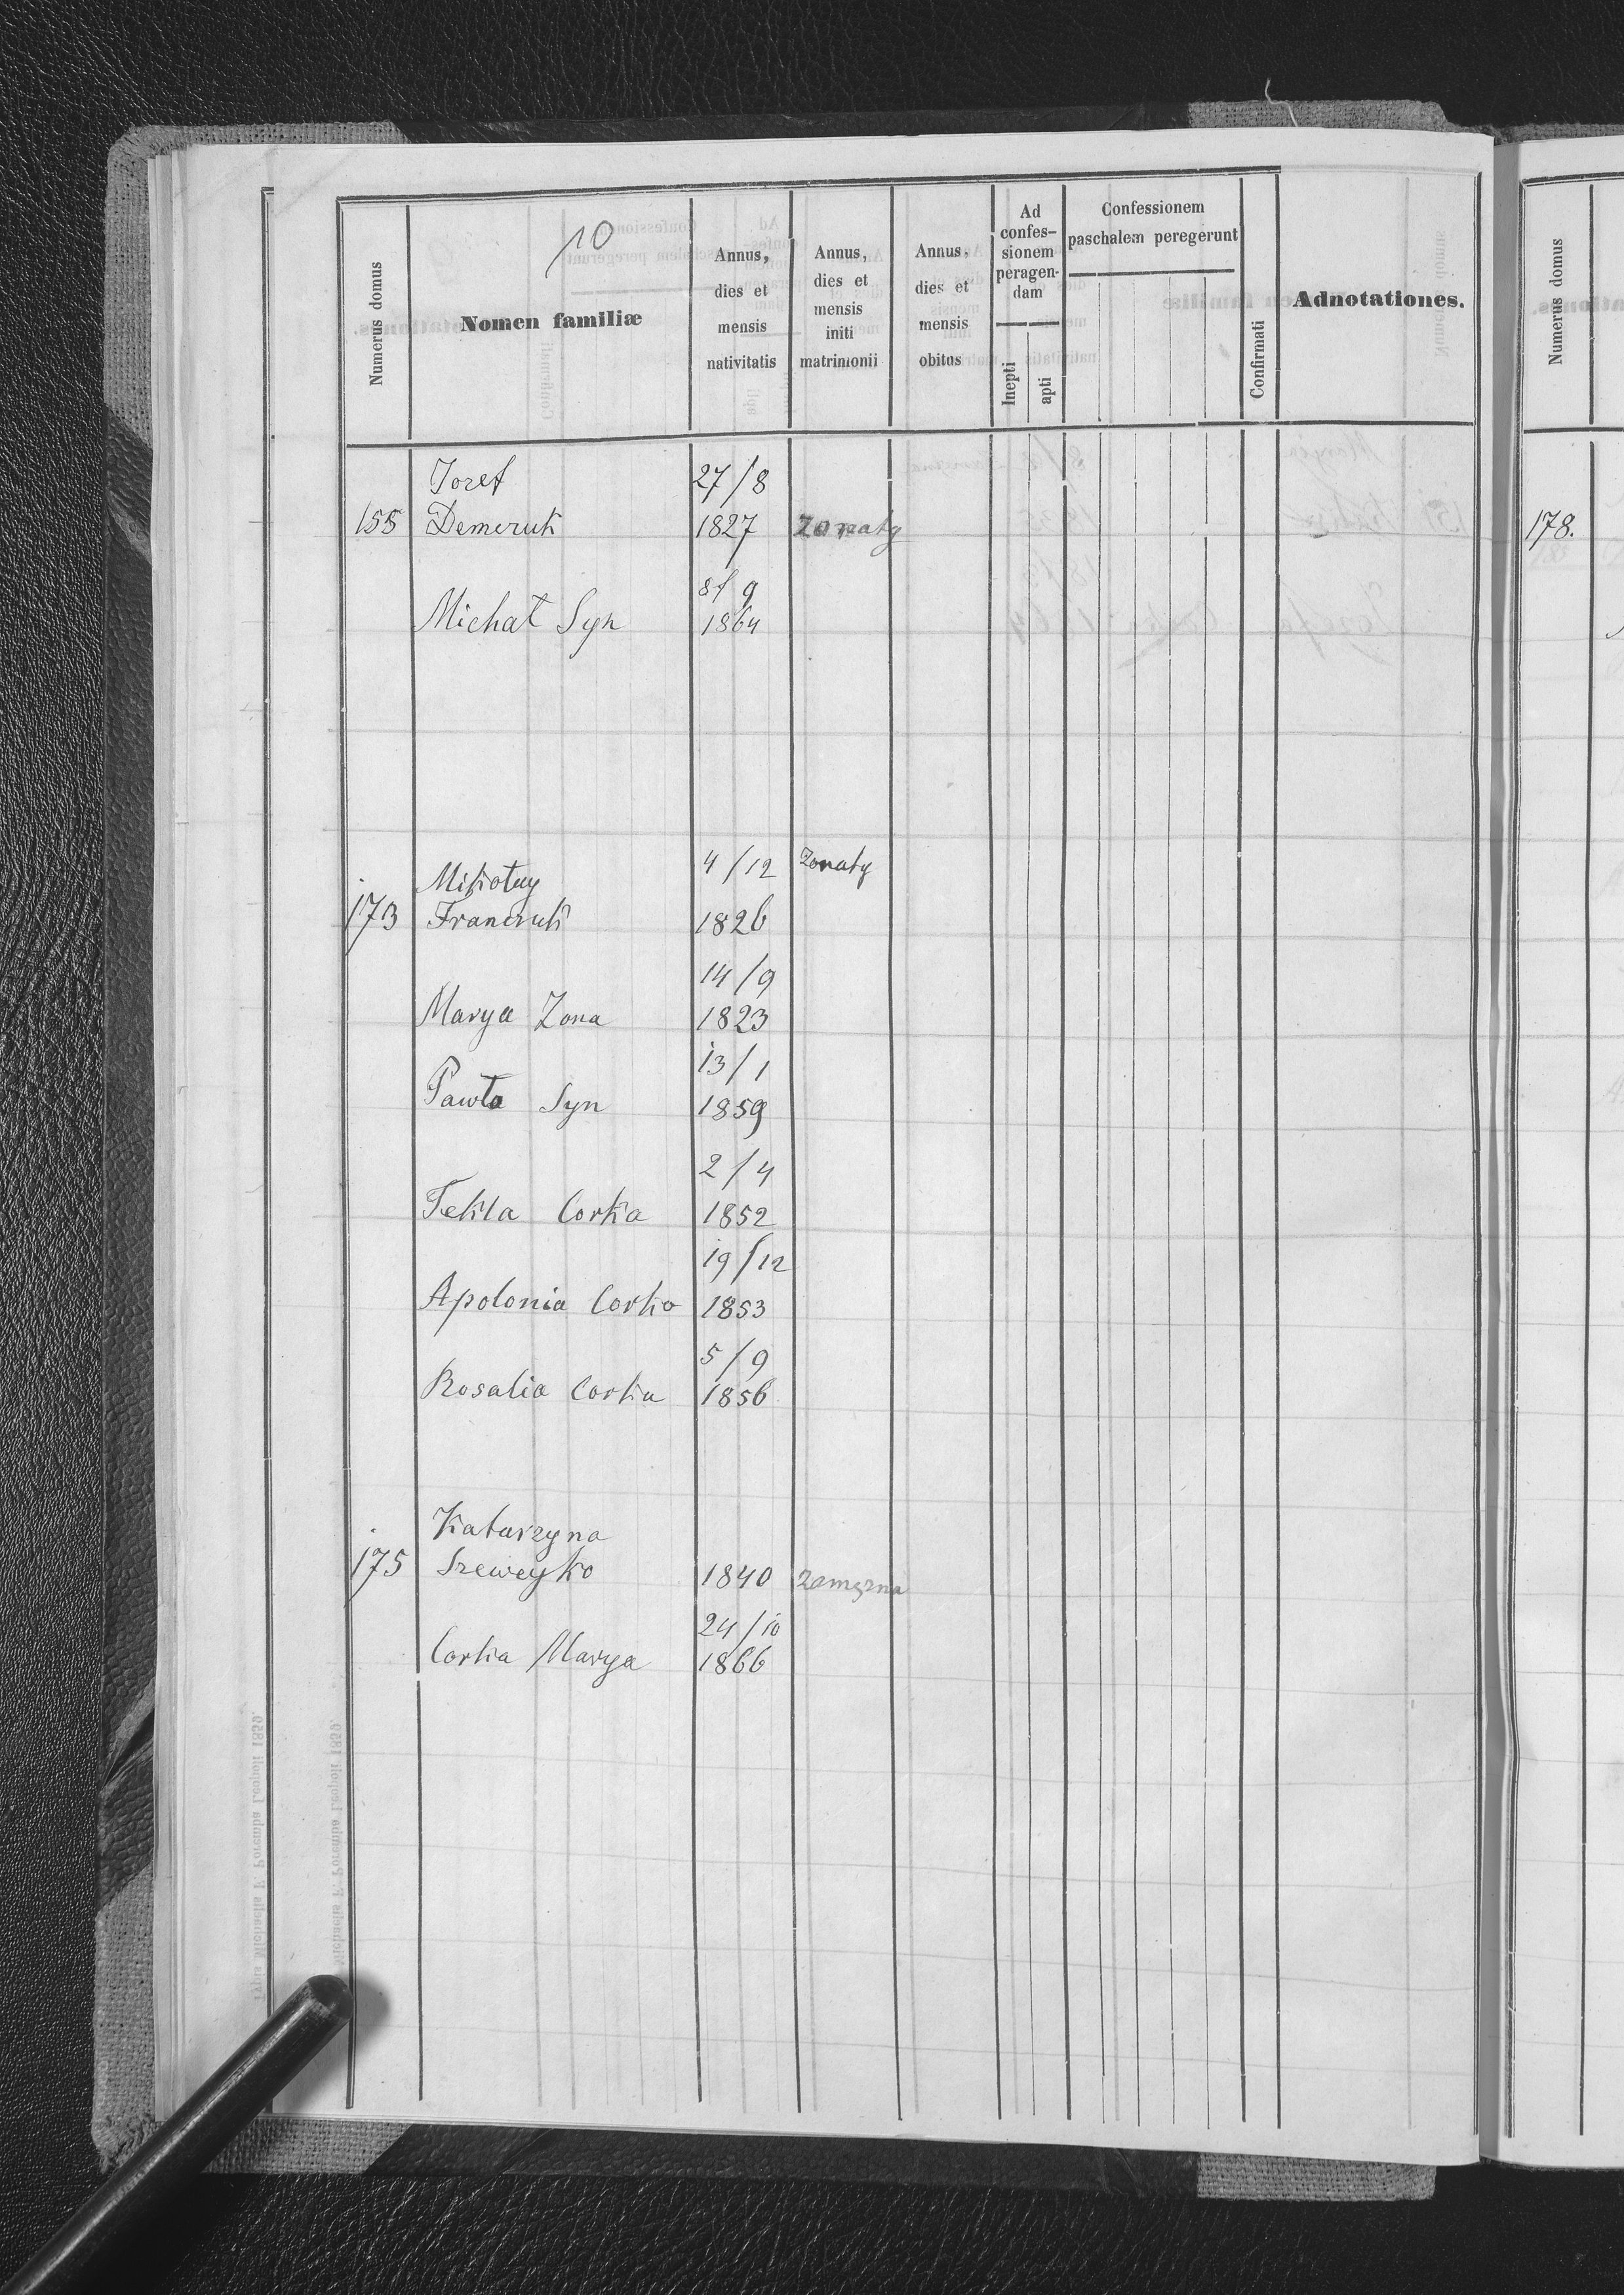 10
Numerus domus
Nomen familiæ
Annus, dies et mensis nativitatis
Annus, dies et mensis initi matrimonii
Annus, dies et mensis obitus
Ad confes-
sionem
peragen-
dam
Inepti
apti
Confessionem
paschalem peregerunt
Confirmati
Adnotationes.
Numerus domus
Jozef 27/8
155 Demczuk 1827 Zonaty
178.
8/9
Michał Syn 1864
Mikołay 4/12 Zonaty
173 Franczuk 1826
14/9
Marya Zona 1823
13/1
Pawło Syn 1859
2/4
Tekla Corka 1852
19/12
Apolonia Corka 1853
5/9
Rosalia Corka 1856
Katarzyna
175 Szeweyko 1840 zamęzna
24/10
Corka Marya 1866